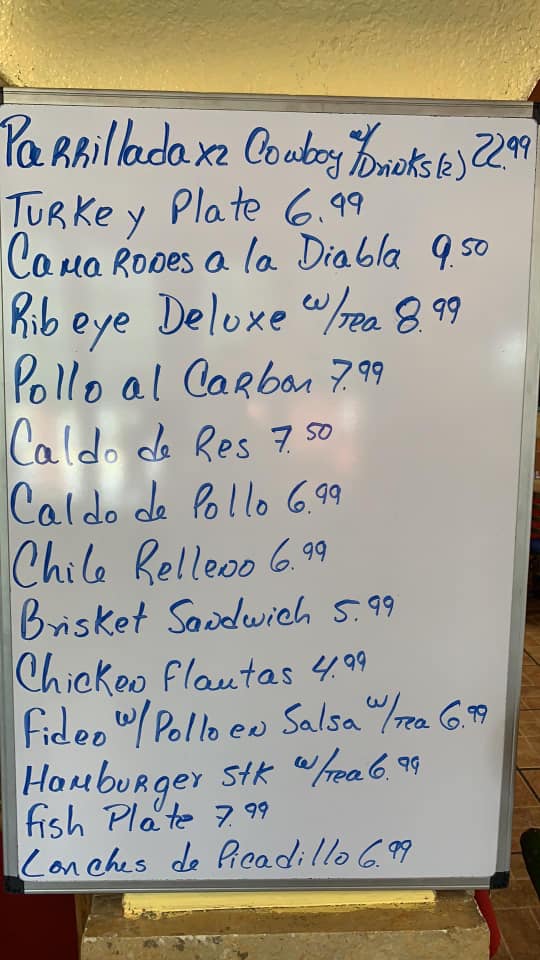 Parrillada x2 Cowboy w/Drinks(2) 22.99
Turkey Plate 6.99
Camarones a la Diabla 9.50
Rib eye Deluxe w/Tea 8.99
Pollo al Carbon 7.99
Caldo de Res 7.50
Caldo de Pollo 6.99
Chile Relleno 6.99
Brisket Sandwich 5.99
Chicken Flautas 4.99
Fideo w/Pollo en Salsa w/Tea 6.99
Hamburger Stk w/Tea 6.99
Fish Plate 7.99
Lonches de Picadillo 6.99